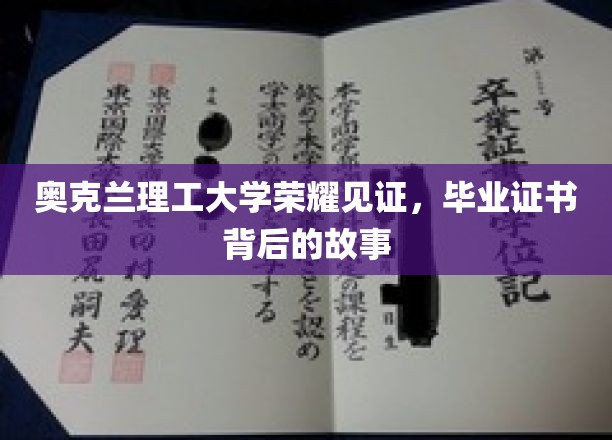 奥克兰理工大学荣耀见证，毕业证书
背后的故事
第 号
卒業証書 学位記
本学商学部 定の課程を
修めて本学 とを認め
学士(商学)の する
平成
日生
東京国際大学 田村愛理
東京国際大学 長田尻嗣夫